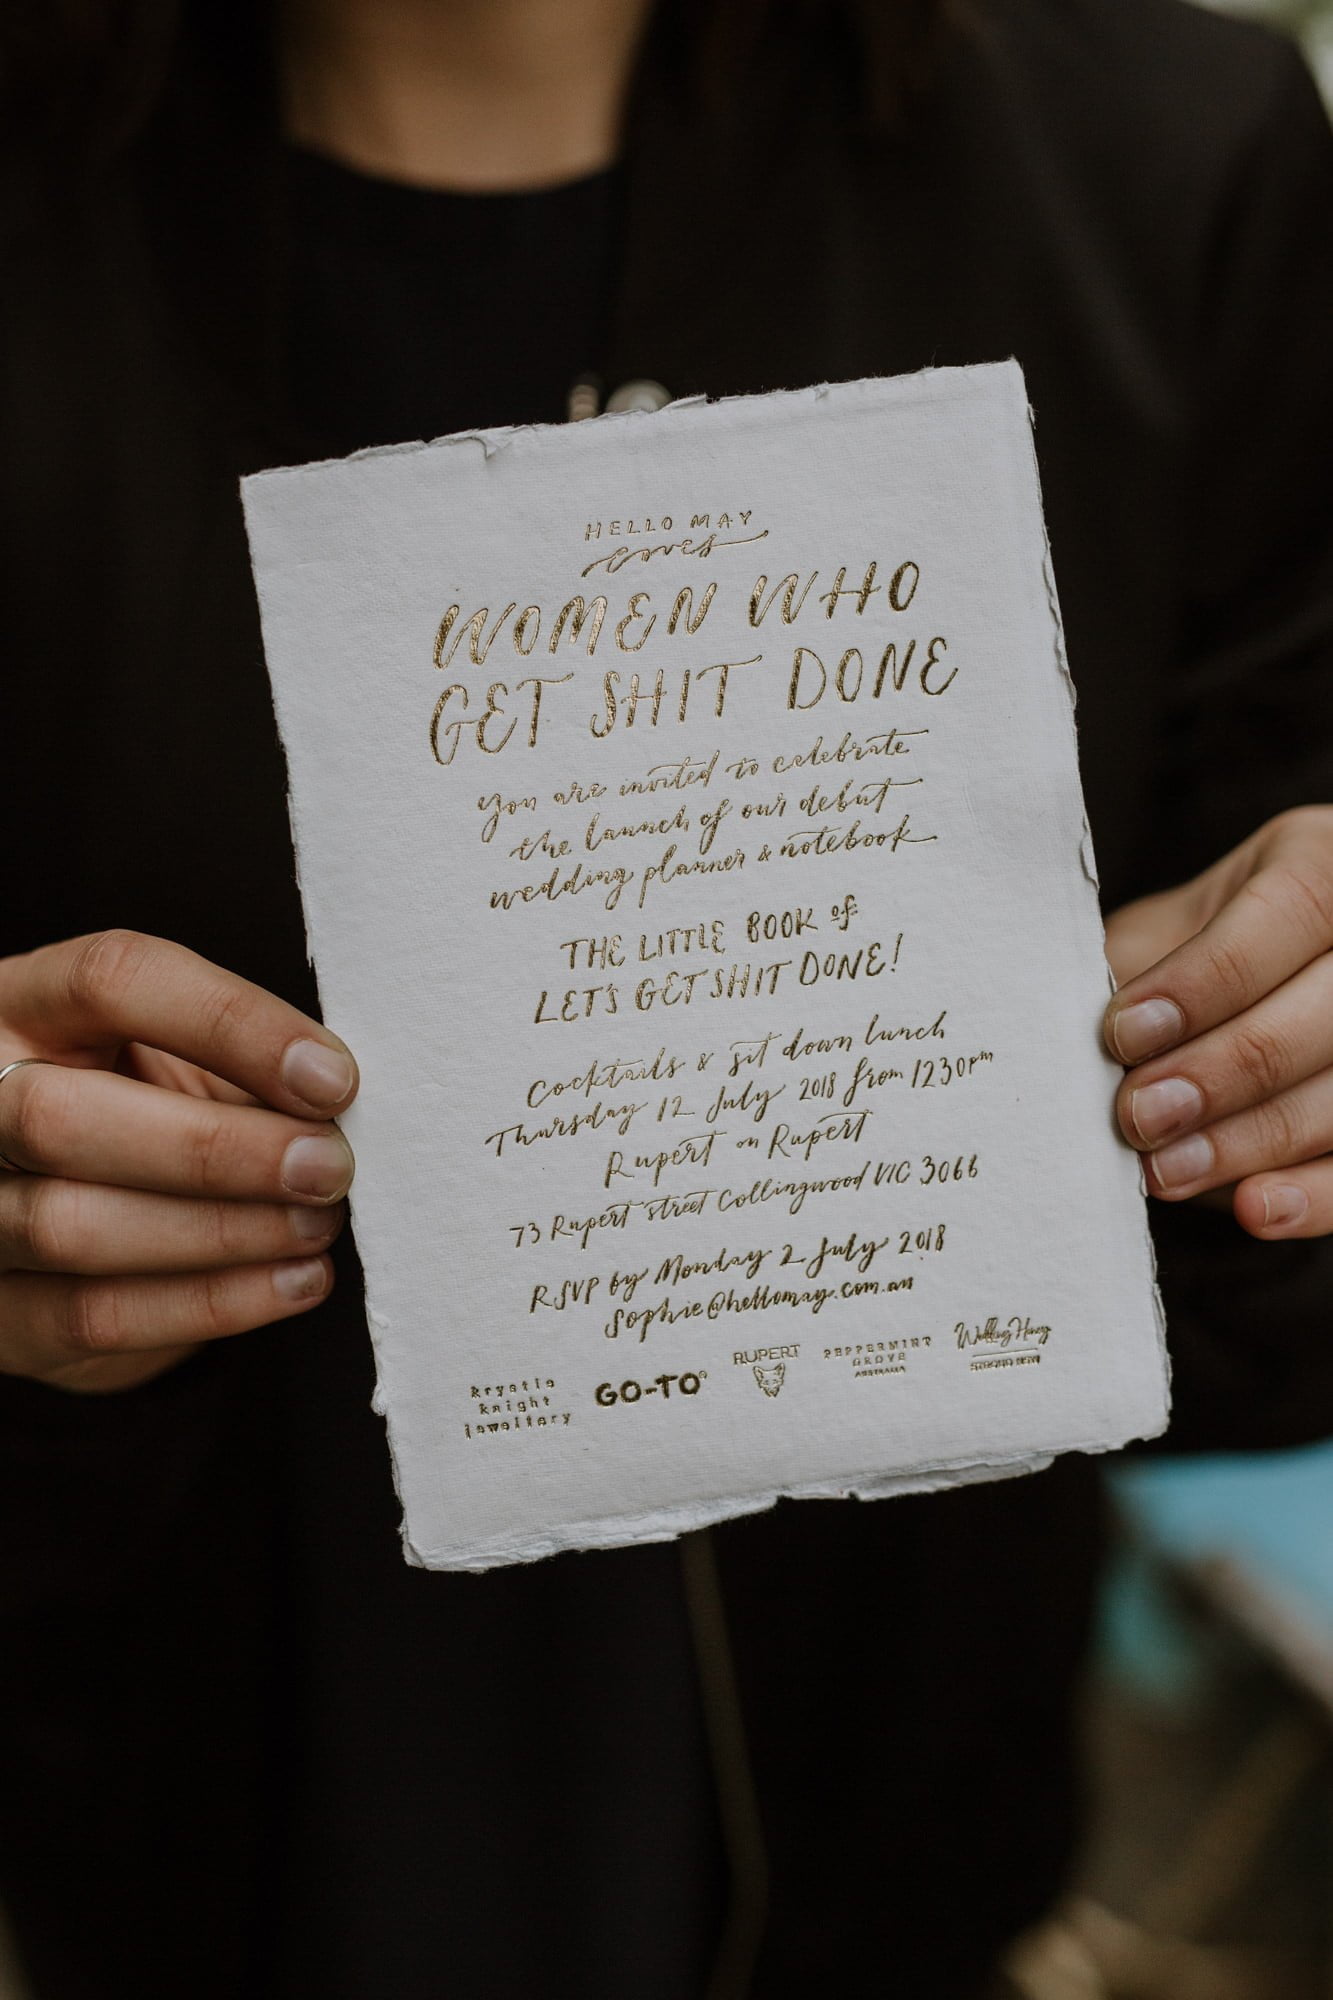 HELLO MAY
loves
WOMEN WHO
GET SHIT DONE
you are invited to celebrate
the launch of our debut
wedding planner & notebook
THE LITTLE BOOK of
LET'S GET SHIT DONE!
Cocktails & sit down lunch
Thursday 12 July 2018 from 1230pm
Rupert on Rupert
73 Rupert street Collingwood VIC 3066
RSVP by Monday 2 July 2018
Sophie@hellomay.com.au
krystle
knight
jewellery
GO-TO®
RUPERT
PEPPERMINT
GROVE
AUSTRALIA
Wedding Honey